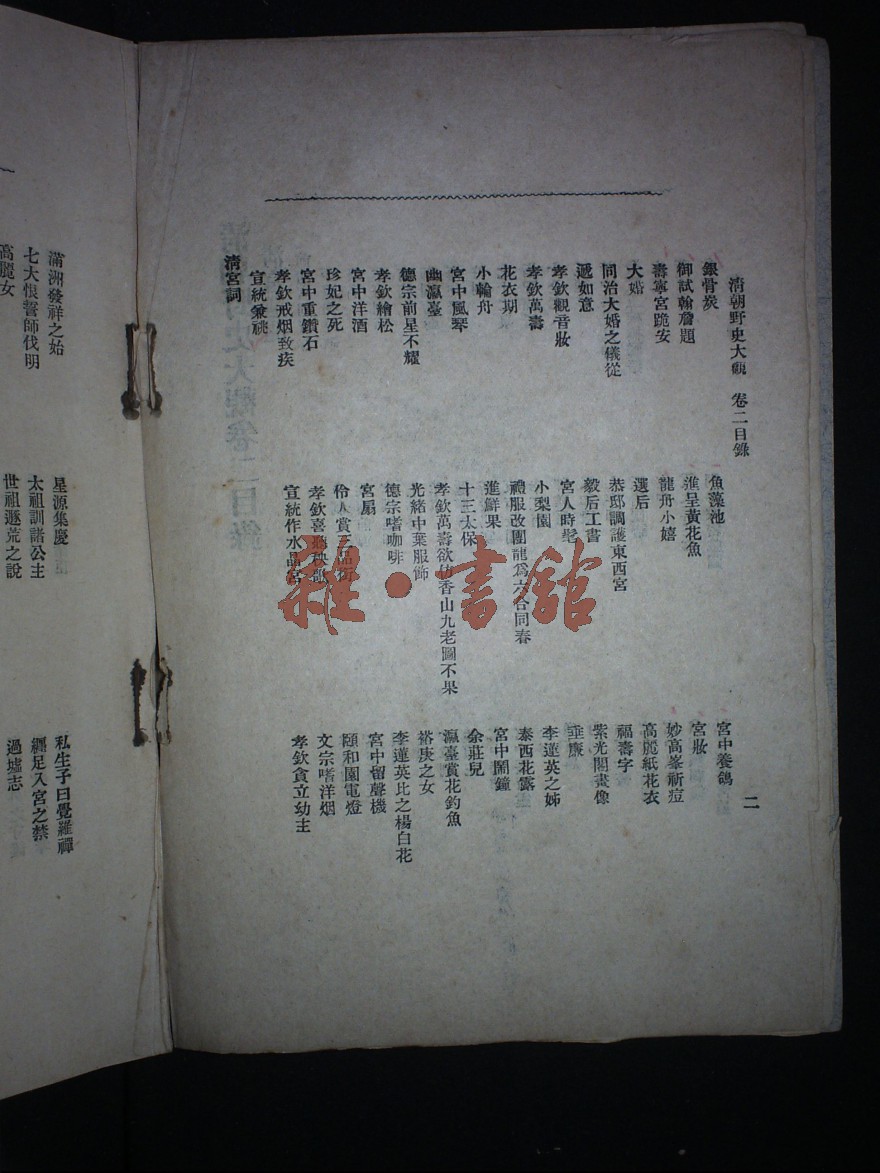 清朝野史大觀 卷二目錄 二
銀骨炭 魚藻池 宮中養鴿
御試翰詹題 進呈黃花魚 宮妝
壽寧宮跪安 龍舟小嬉 妙高峯祈痘
大婚 選后 高麗紙花衣
同治大婚之儀從 恭邸調護東西宮 福壽字
遞如意 毅后工書 紫光閣畫像
孝欽觀音妝 宮人時髦 垂簾
孝欽萬壽 小梨園 李蓮英之姊
花衣期 禮服改團龍爲六合同春 泰西花露
小輪舟 進鮮果 宮中鬧鐘
宮中風琴 十三太保 余莊兒
幽瀛臺 孝欽萬壽欲仿香山九老圖不果 瀛臺賞花釣魚
德宗前星不耀 光緒中葉服飾 裕庚之女
孝欽繪松 德宗嗜咖啡 李蓮英比之楊白花
宮中洋酒 宮扇 宮中留聲機
珍妃之死 伶人賞三品 頤和園電燈
宮中重鑽石 孝欽喜聽秧歌 文宗嗜洋烟
孝欽戒烟致疾 宣統作水晶宮 孝欽貪立幼主
宣統兼祧
清宮詞
滿洲發祥之始 星源集慶 私生子曰覺羅禪
七大恨誓師伐明 太祖訓諸公主 纏足入宮之禁
高麗女 世祖遜荒之說 過墟志
雅·書館